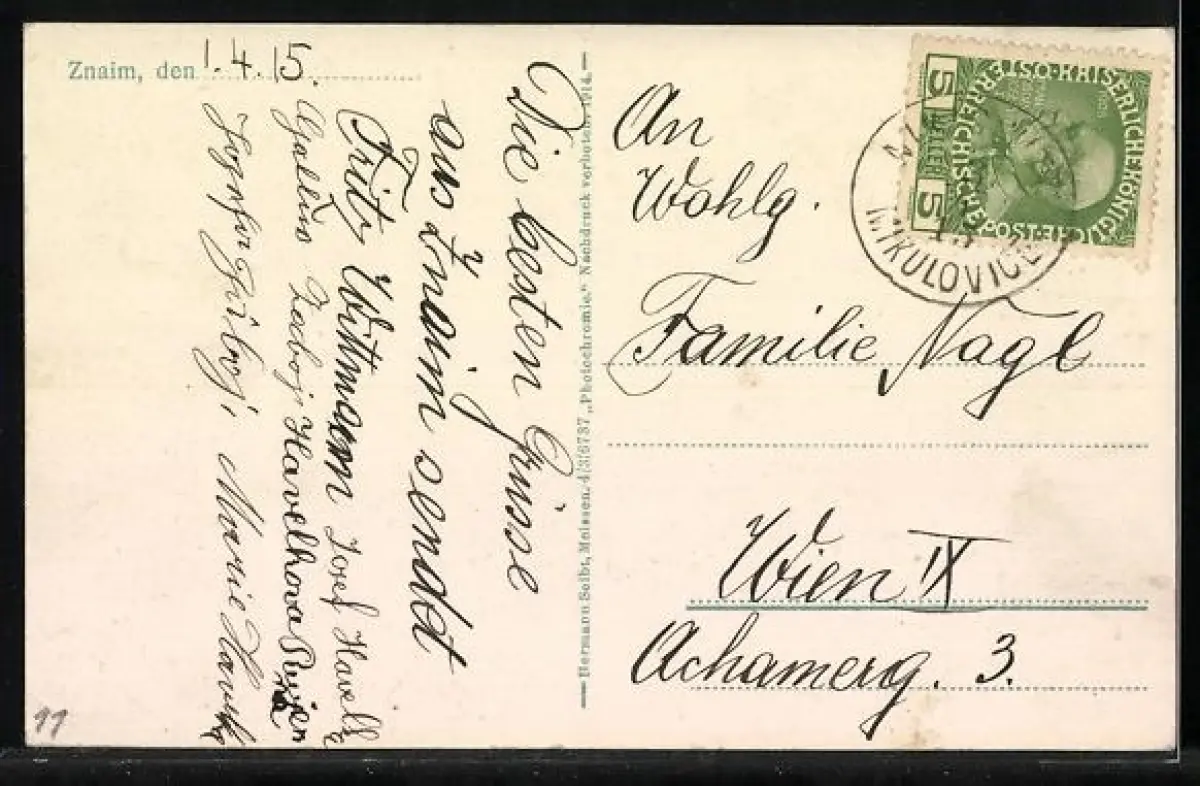 Znaim, den 1.4.15.
Die besten Grüsse
aus Znaim sendet
Fritz Wittmann Josef Havelk
Havelkova
Marie Havelk
Hermann Seibt, Meissen, 4/3/6737 „Photochromie.“ Nachdruck verboten. 1914.
An
Wohlg.
Familie Nagl
Wien IX
Achamerg. 3.
KAISERLICHEKÖNIGLICHE
ÖSTERREICHISCHE POST
5 HELLER 5
MIKULOVICE
99